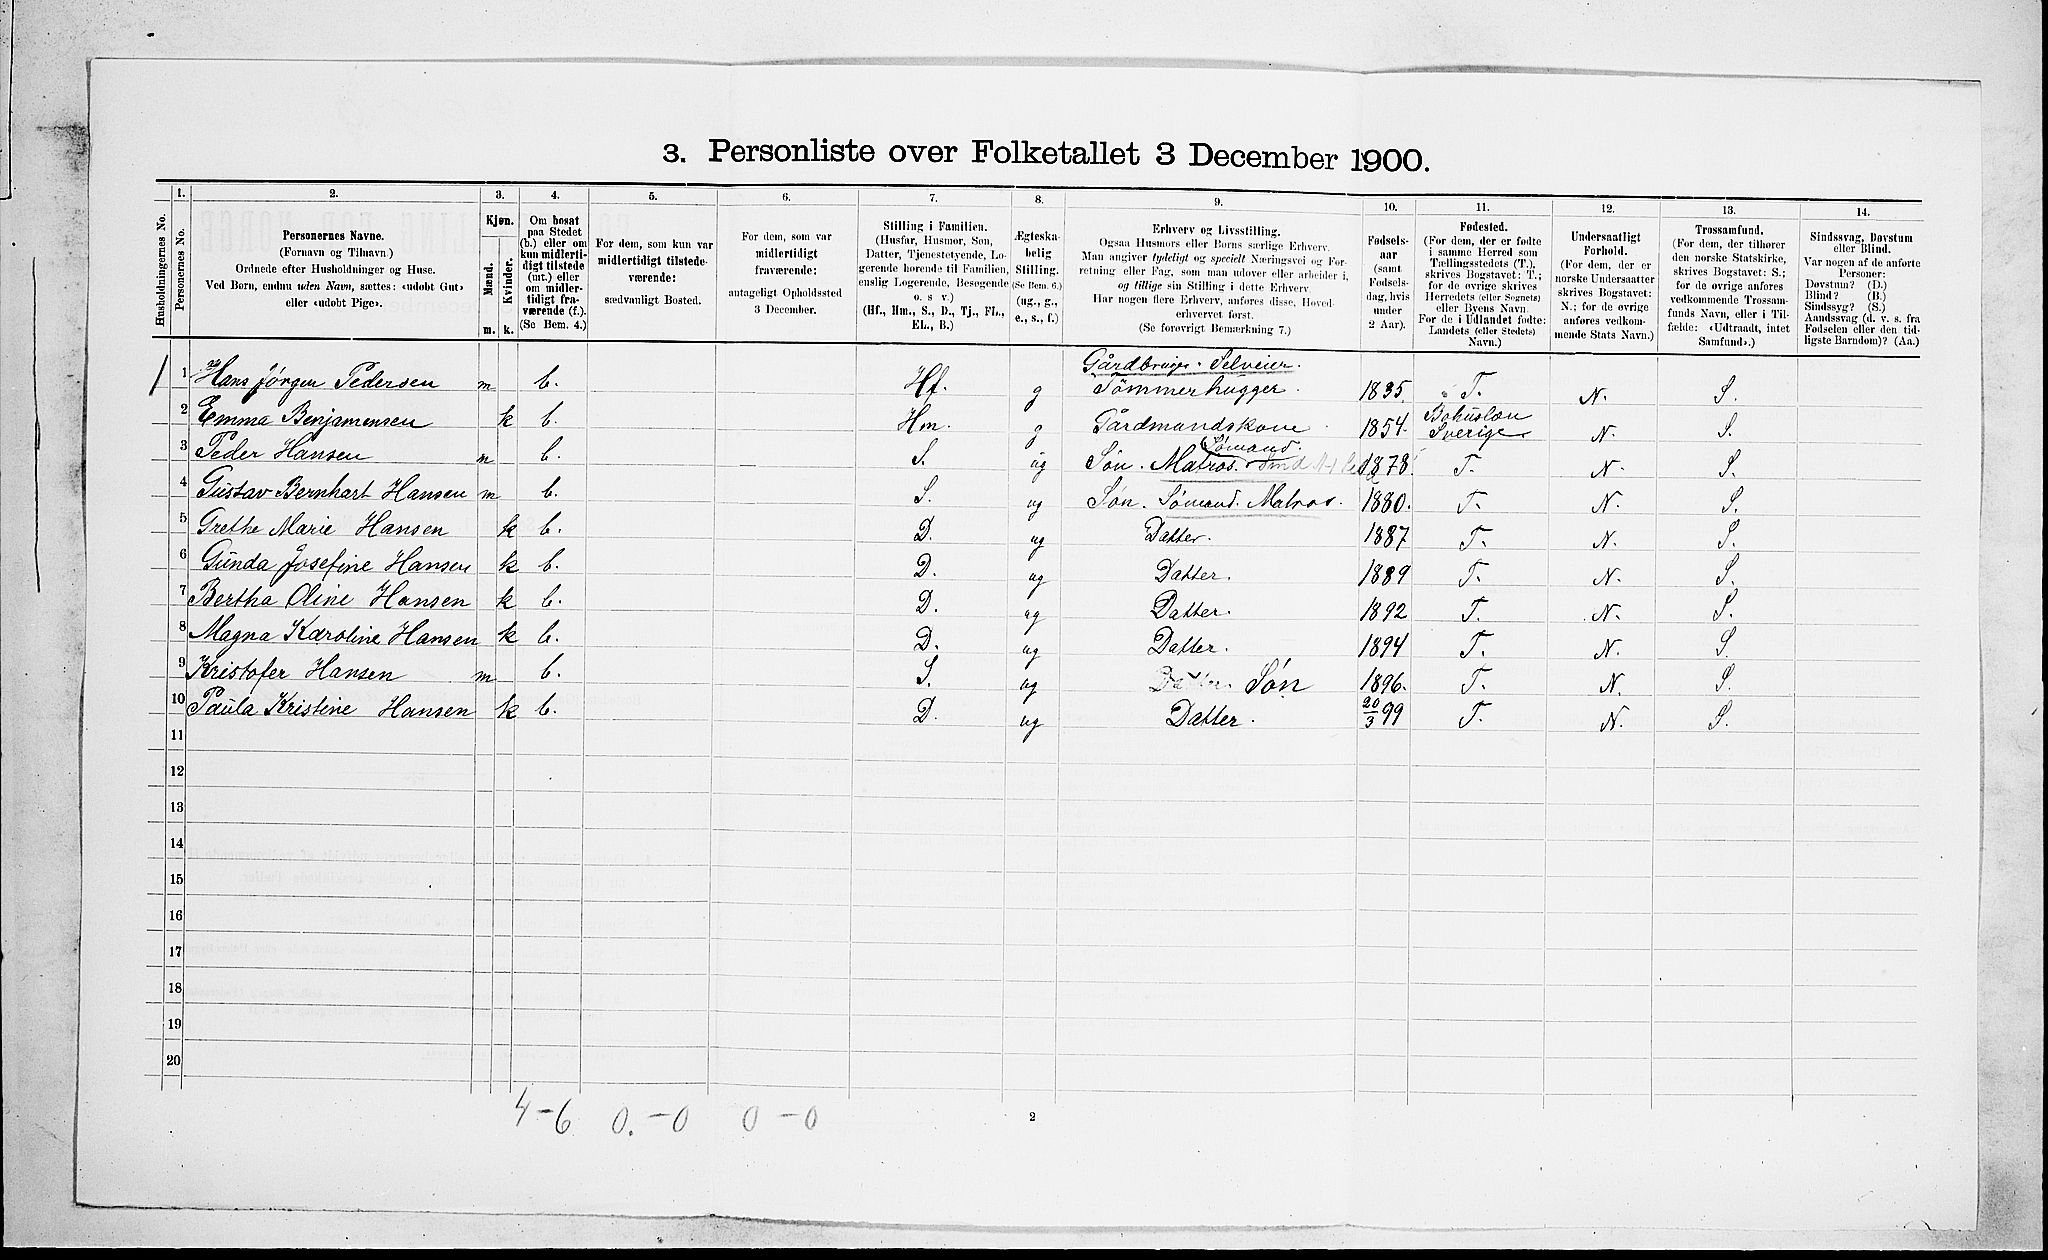 3. Personliste over Folketallet 3 December 1900.
1. 2. 3. 4. 5. 6. 7. 8. 9. 10. 11. 12. 13. 14.
Husholdningernes No.
Personernes No.
Personernes Navne.
(Fornavn og Tilnavn)
Ordnede efter Husholdninger og Huse.
Ved Børn, endnu uden Navn, sættes: «udobt Gut»
eller «udobt Pige».
Kjøn.
Mænd. Kvinder.
m. k.
Om bosat
paa Stedet
(b.) eller om
kun midlerti-
digt tilstede
(mt.) eller
om midler-
tidigt fra-
værende (f.).
(Se Bem. 4.)
For dem, som kun var
midlertidigt tilstede-
værende:
sædvanligt Bosted.
For dem, som var
midlertidigt
fraværende:
antageligt Opholdssted
3 December.
Stilling i Familien.
(Husfar, Husmor, Søn,
Datter, Tjenestetyende, Lo-
gerende hørende til Familien,
enslig Logerende, Besøgende
o. s v.)
(Hf., Hm., S., D., Tj., FL.,
EL., B.)
Ægteska-
belig
Stilling.
(Se Bem. 6.)
(ug., g.,
e., s., f.)
Erhverv og Livsstilling.
Ogsaa Husmors eller Børns særlige Erhverv.
Man angiver tydeligt og specielt Næringsvei og For-
retning eller Fag, som man udover eller arbeider i,
og tillige sin Stilling i dette Erhverv.
Har nogen flere Erhverv, anføres disse, Hoved-
erhvervet først.
(Se forøvrigt Bemærkning 7.)
Fødsels-
aar
(samt
Fødsels-
dag, hvis
under
2 Aar).
Fødested.
(For dem, der er fødte
i samme Herred som
Tællingsstedets (T.),
skrives Bogstavet: T.;
for de øvrige skrives
Herredets (eller Sognets)
eller Byens Navn.
For de i Udlandet fødte:
Landets (eller Stedets)
Navn.)
Undersaatligt
Forhold.
(For dem, der er
norske Undersaatter
skrives Bogstavet:
N.; for de øvrige
anføres vedkom-
mende Stats Navn.)
Trossamfund.
(For dem, der tilhører
den norske Statskirke,
skrives Bogstavet: S.;
for de øvrige anføres
vedkommende Trossam-
funds Navn, eller i Til-
fælde: «Udtraadt, intet
Samfund».)
Sindssvag, Døvstum
eller Blind.
Var nogen af de anførte
Personer:
Døvstum? (D.)
Blind? (B.)
Sindssyg? (S.)
Aandssvag (d. v. s. fra
Fødselen eller den tid-
ligste Barndom)? (Aa.)
1 1 Hans Jørgen Pedersen m b. Hf. g Gårdbruger. Selveier. Tömmerhugger. 1835. T. N. S.
2 Emma Benjamensen k b. Hm. g Gårdmandskone 1854. Bohuslæn Sverige N. S.
3 Peder Hansen m b. S. ug Søn. Matros. Sømand. 1878. T. N. S.
4 Gustav Bernhart Hansen m b. S. ug Søn. Sømand. Matros. 1880. T. N. S.
5 Grethe Marie Hansen k b. D. ug Datter. 1887 T. N. S.
6 Gunda Josefine Hansen k b. D. ug Datter. 1889 T. N. S.
7 Bertha Oline Hansen k b. D. ug Datter. 1892 T. N. S.
8 Magna Karoline Hansen k b. D. ug Datter. 1894 T. N. S.
9 Kristofer Hansen m b. S. ug Datter. Søn 1896. T. N. S.
10 Paula Kristine Hansen k b. D. ug Datter. 20/3 99 T. N. S.
11
12
13
14
15
16
17
18
19
20
4-6 0.-0 0-0
2